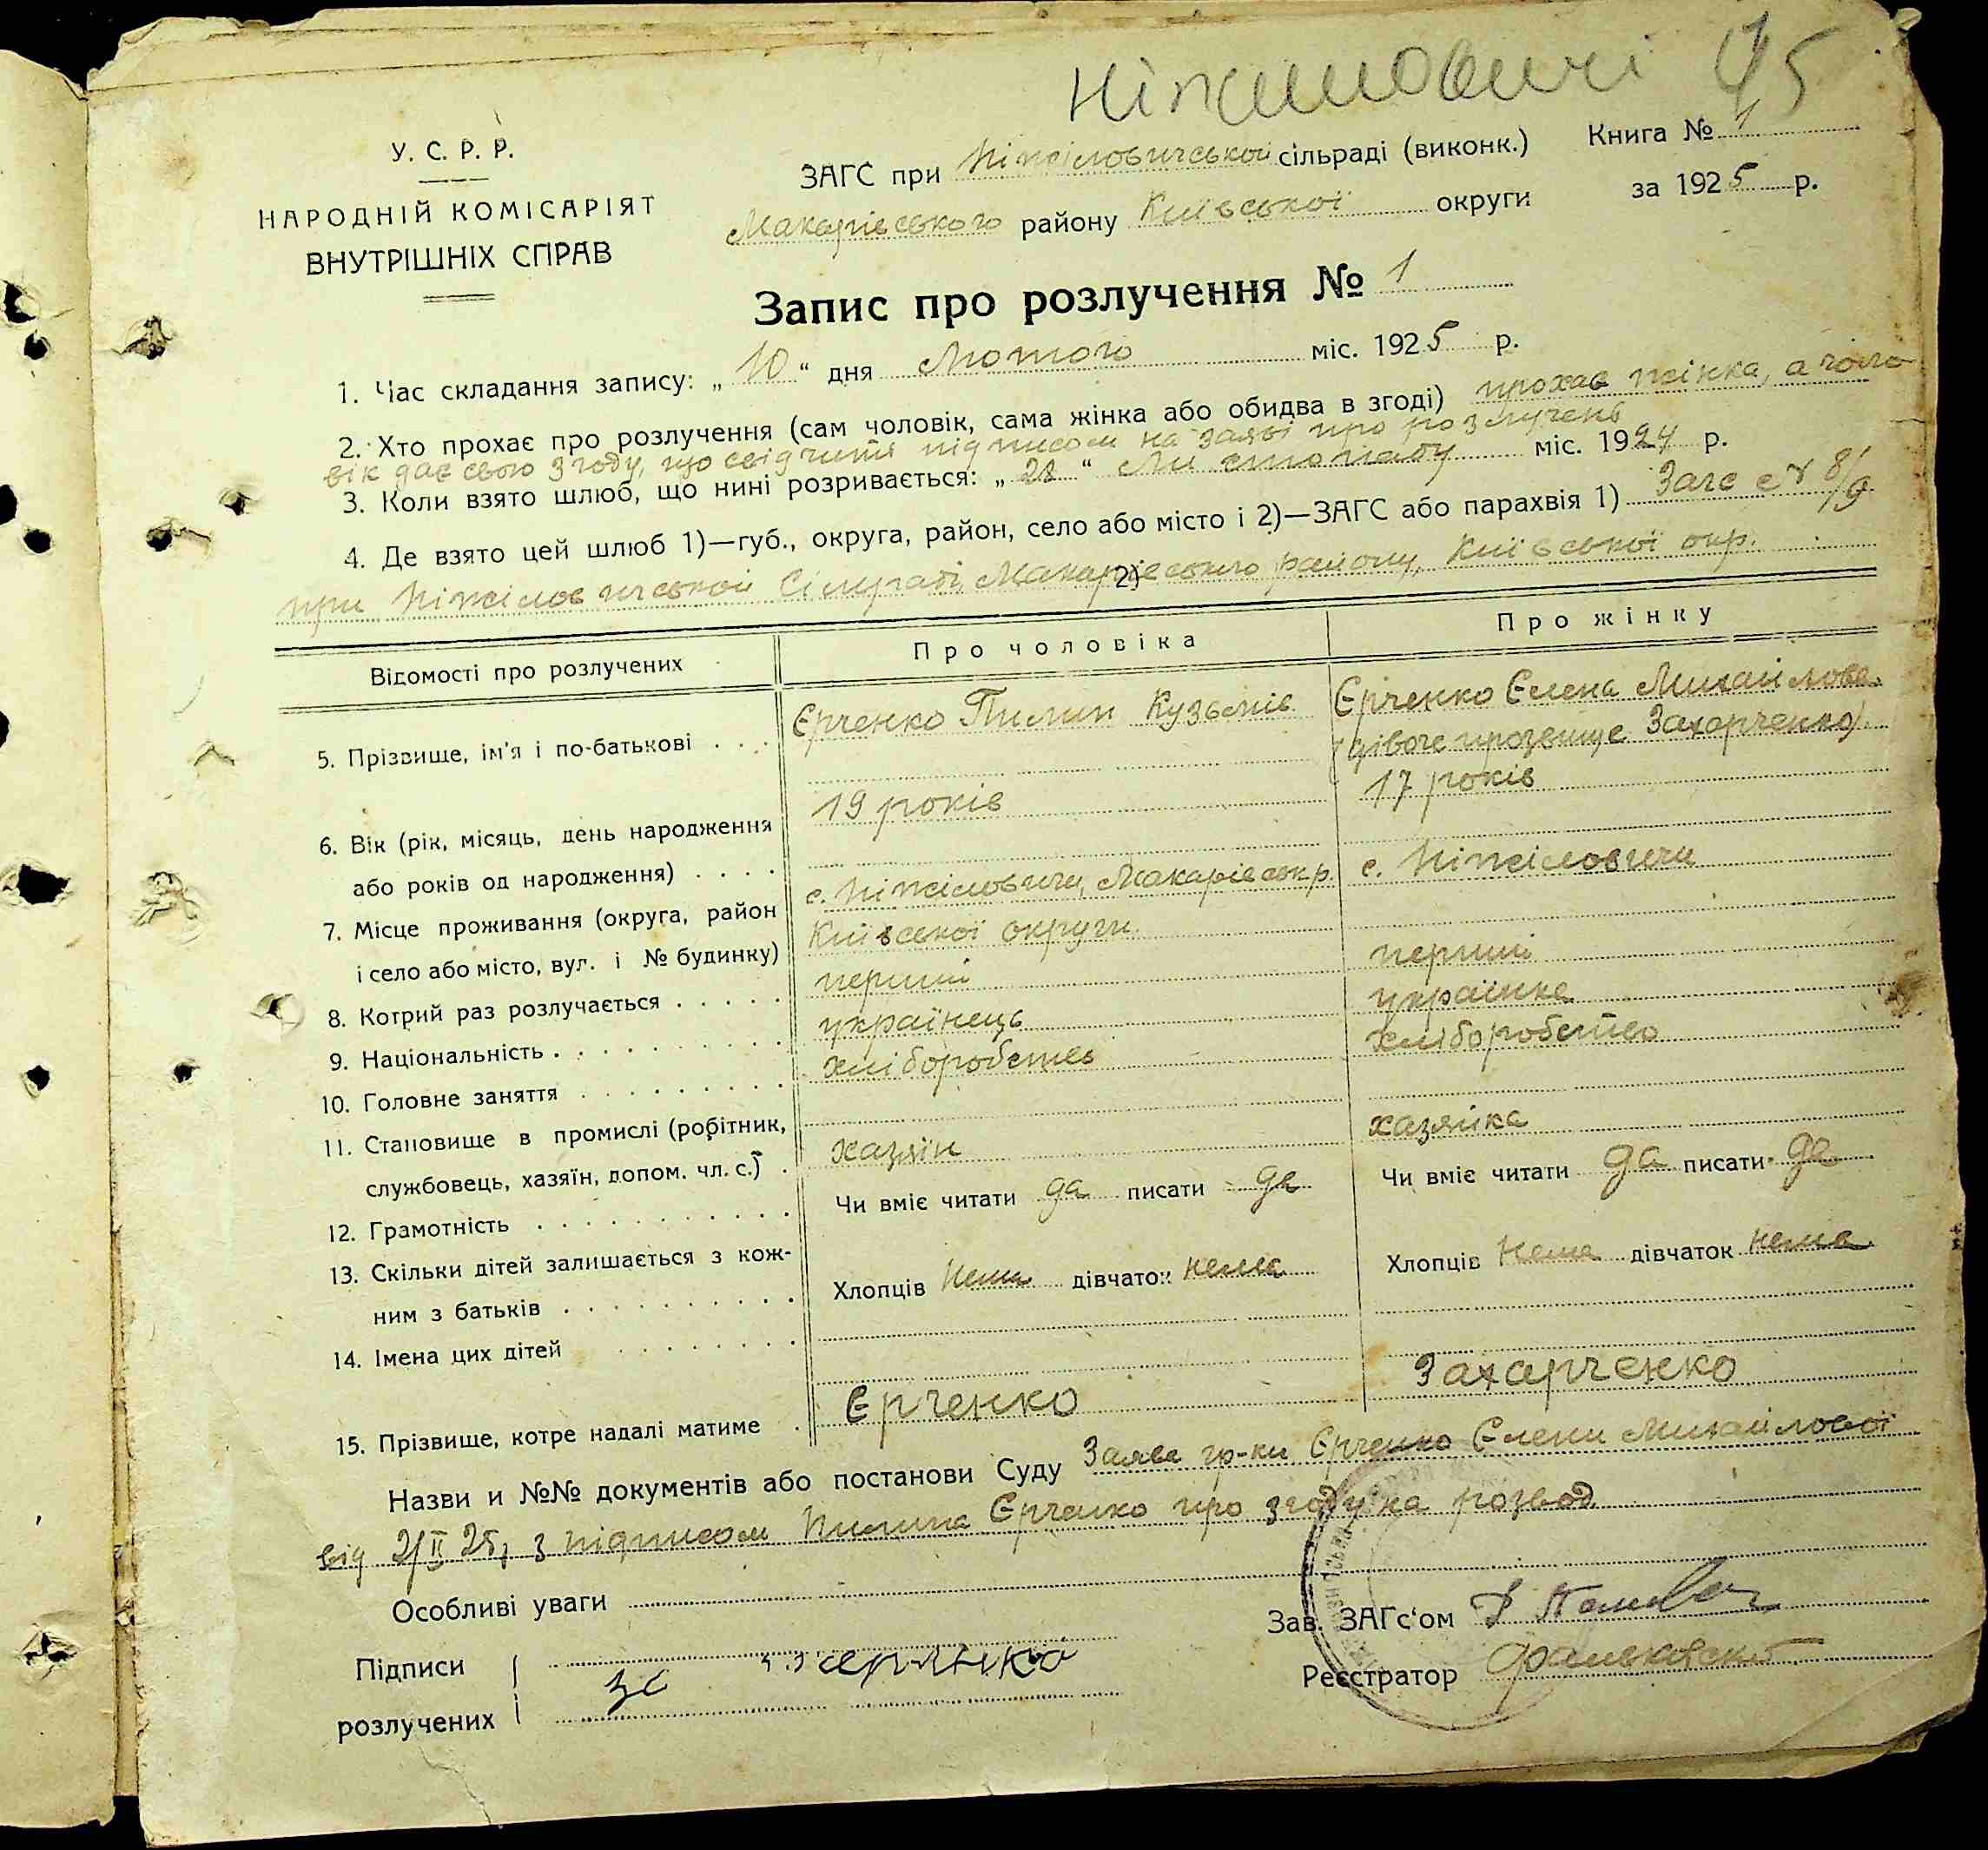 Ніжиловичі 45
У. С. Р. Р.
НАРОДНІЙ КОМІСАРІЯТ
ВНУТРІШНІХ СПРАВ
ЗАГС при Ніжіловичськой сільраді (виконк.) Книга № 1
Макарівського району Київської округи за 1925 р.
Запис про розлучення № 1
1. Час складання запису: „10“ дня Лютого міс. 1925 р.
2. Хто прохає про розлучення (сам чоловік, сама жінка або обидва в згоді) прохає жінка, а чоло
вік дає свою згоду, що свідчить підписом на заяві про розлучень
3. Коли взято шлюб, що нині розривається: „28“ Листопаду міс. 1924 р.
4. Де взято цей шлюб 1)—губ., округа, район, село або місто і 2)—ЗАГС або парахвія 1) Загс № 8/9
при Ніжіловичськой Сільраді, Макарівського району, Київської окр. 2)
Відомості про розлучених Про чоловіка Про жінку
5. Прізвище, ім'я і по-батькові . . . Єрченко Пилип Кузьмів Єрченко Єлена Михайлова
(дівоче прозвище Захарченко)
6. Вік (рік, місяць, день народження 19 років 17 років
або років од народження) . . . .
7. Місце проживання (округа, район с. Ніжіловичи, Макарівськ р. с. Ніжіловичи
і село або місто, вул. і № будинку) Київської округи
8. Котрий раз розлучається . . . . . перший перший
9. Національність . . . . . . . . . . українець українка
10. Головне заняття . . . . . . . . хліборобство хліборобство
11. Становище в промислі (робітник,
службовець, хазяїн, допом. чл. с.) . хазяїн хазяйка
12. Грамотність . . . . . . . . . . . Чи вміє читати да писати да Чи вміє читати да писати да
13. Скільки дітей залишається з кож-
ним з батьків . . . . . . . . . . Хлопців нема дівчаток нема Хлопців нема дівчаток нема
14. Імена цих дітей . . . . . . . .
15. Прізвище, котре надалі матиме . Єрченко Захарченко
Назви и №№ документів або постанови Суду Заява гр-ки Єрченко Єлени Михайлової
від 2/II 25, з підписом Пилипа Єрченко про згоду на розвод
Особливі уваги
Зав. ЗАГс'ом
Підписи
розлучених
Реєстратор